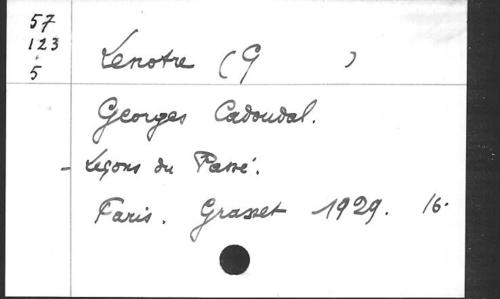 57
123
5
Lenotre (G )
Georges Cadoudal.
- Leçons du Passé.
Paris. Grasset 1929. 16.